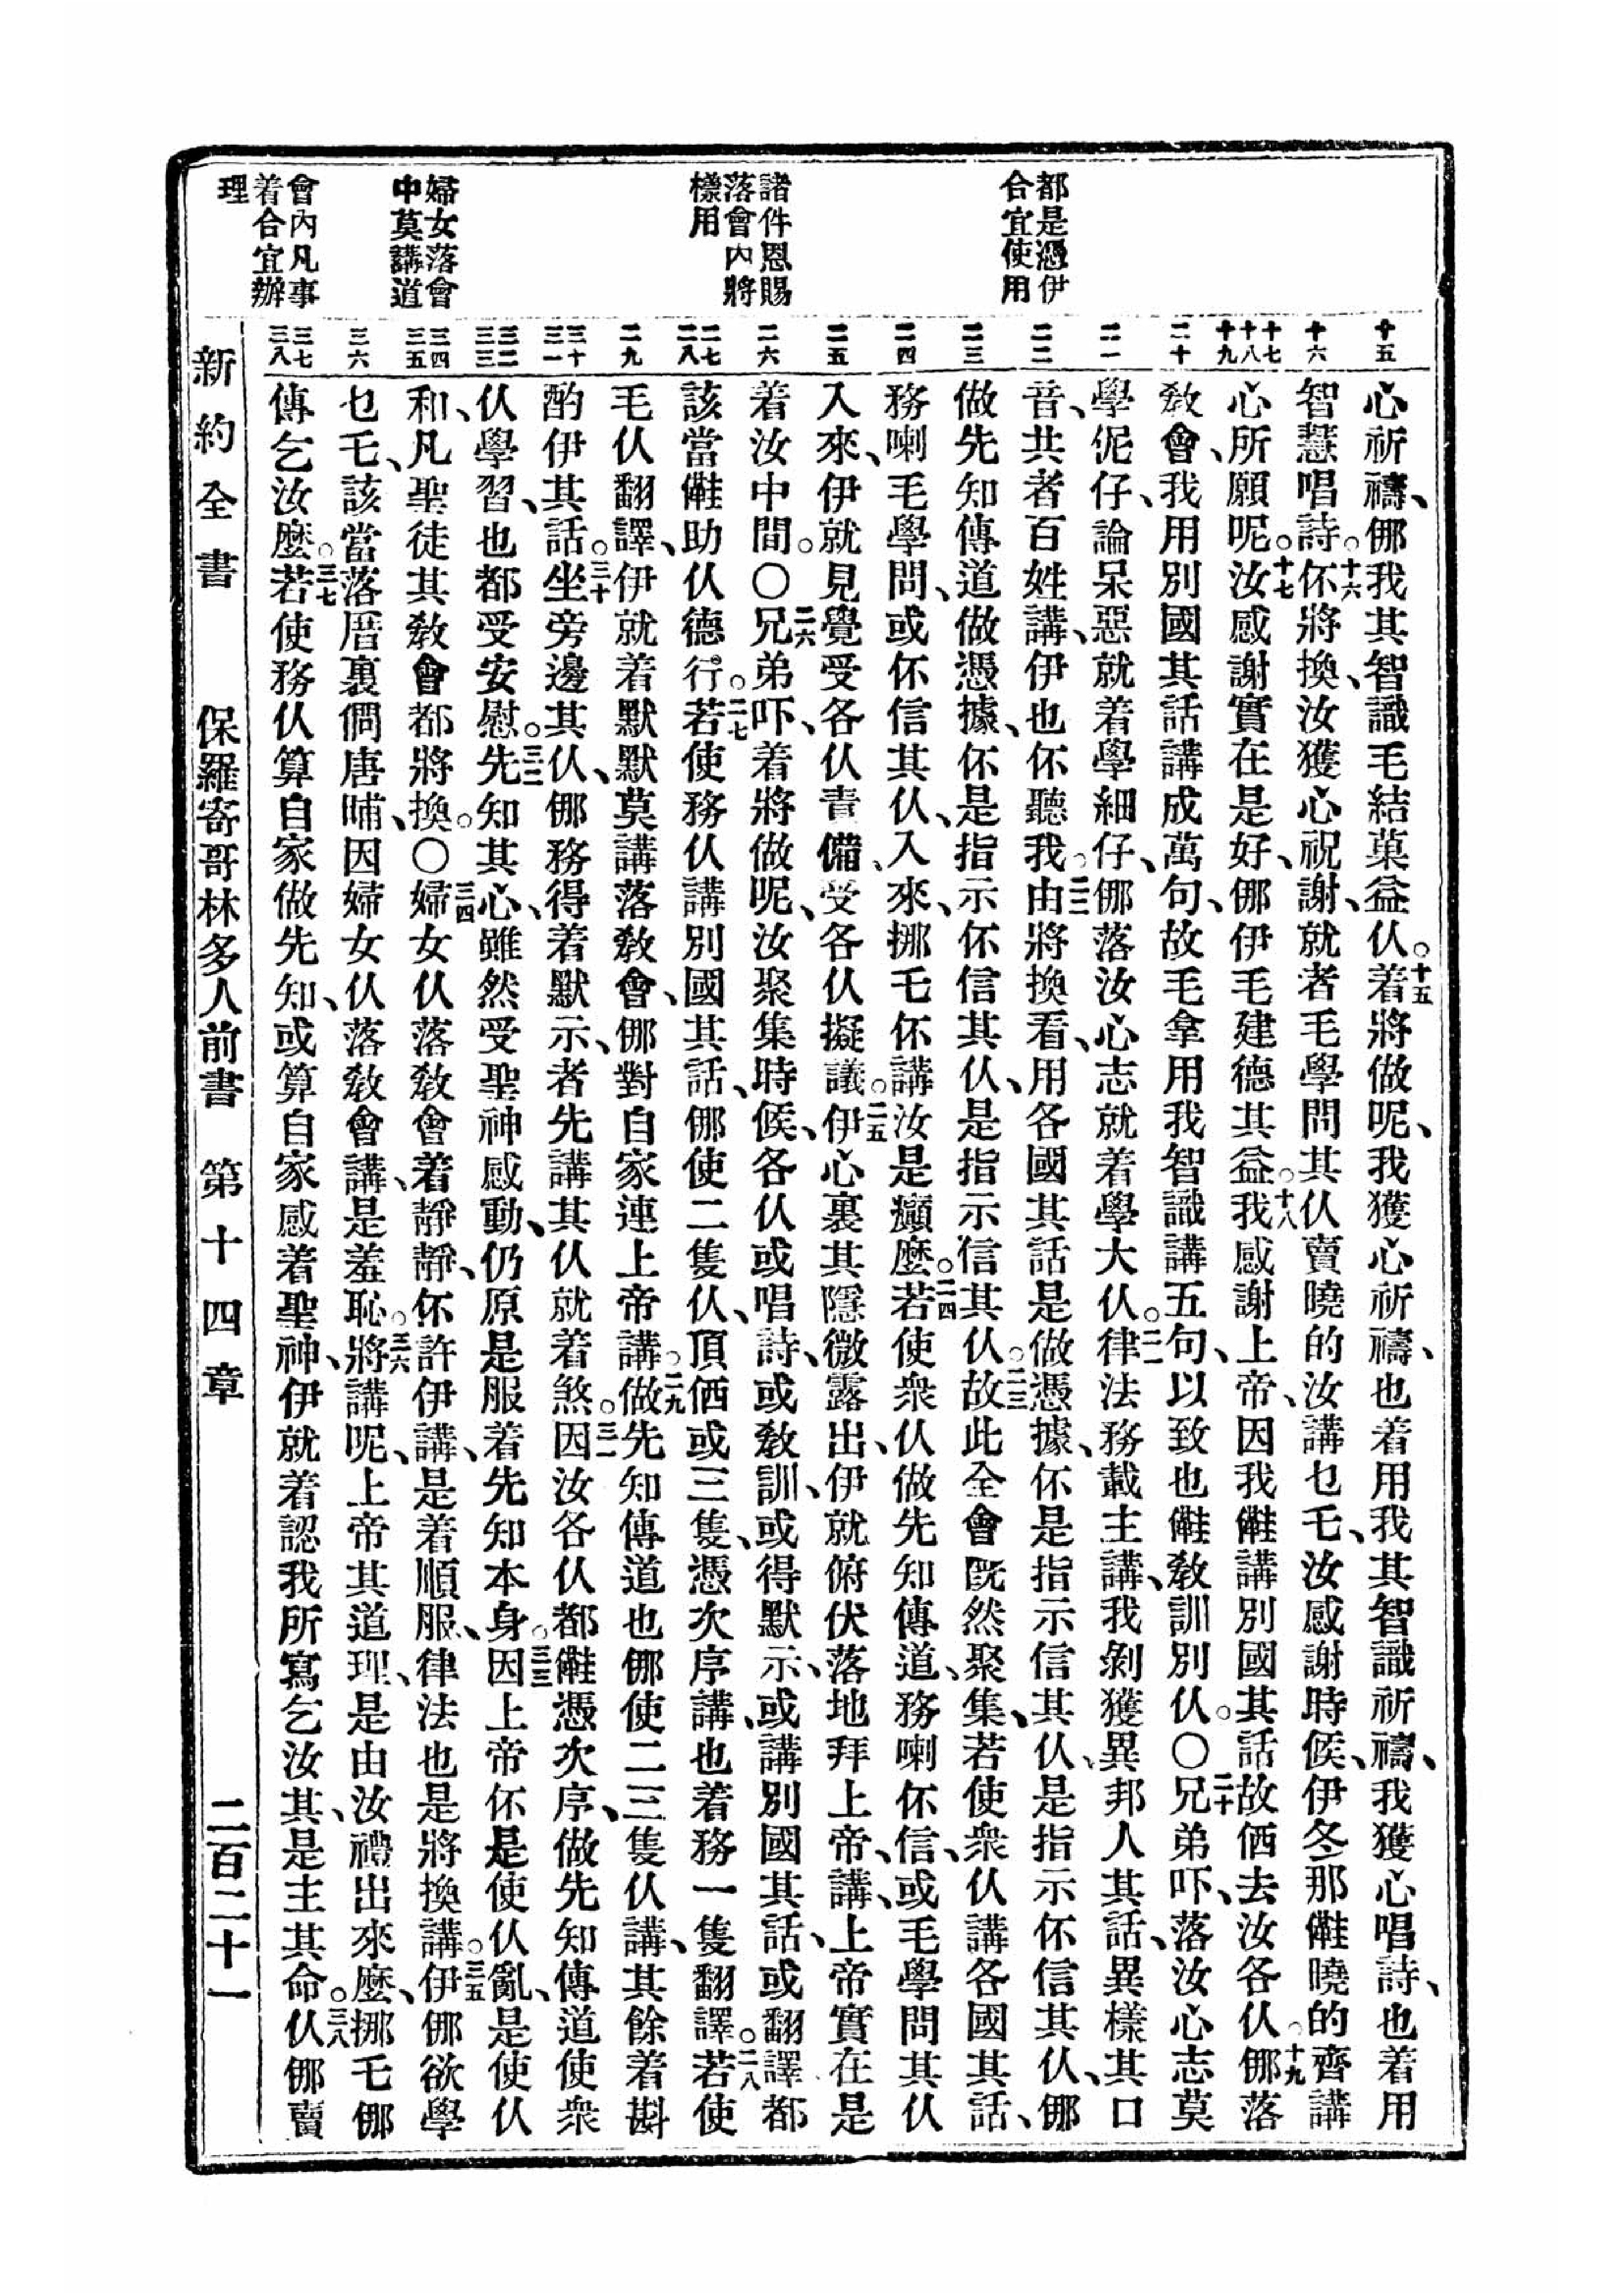 都是憑伊
合宜使用
諸件恩賜
落會內將
樣用
婦女落會
中莫講道
會內凡事
着合宜辦
理
十五
十六
十七
十八
十九
二十
二一
二二
二三
二四
二五
二六
二七
二八
二九
三十
三一
三二
三三
三四
三五
三六
三七
三八
心祈禱、𠆧我其智識毛結菓益仈。十五着將做呢、我獲心祈禱、也着用我其智識祈禱、我獲心唱詩、也着用
智慧唱詩。十六伓將換、汝獲心祝謝、就者毛學問其仈賣曉的汝講乜乇、汝感謝時候、伊冬那㑻曉的齊講
心所願呢。十七汝感謝實在是好、𠆧伊毛建德其益。十八我感謝上帝、因我㑻講別國其話故価去汝各仈。十九𠆧落
敎會、我用別國其話講成萬句、故毛拿用我智識講五句、以致也㑻敎訓別仈。〇二十兄弟吓、落汝心志莫
學伲仔、論呆惡就着學細仔、𠆧落汝心志就着學大仈。二一律法務載主講、我剝獲異邦人其話、異樣其口
音、共者百姓講、伊也伓聽我。二二由將換看、用各國其話是做憑據、伓是指示信其仈、是指示伓信其仈、𠆧
做先知傳道做憑據、伓是指示伓信其仈、是指示信其仈。二三故此全會旣然聚集、若使衆仈講各國其話、
務喇毛學問、或伓信其仈、入來、挪乇伓講汝是癲麽。二四若使衆仈做先知傳道、務喇伓信、或毛學問其仈
入來、伊就見覺受各仈責備、受各仈擬議。二五伊心裏其隱微露出、伊就俯伏落地拜上帝、講、上帝實在是
着汝中間。〇二六兄弟吓、着將做呢、汝聚集時候、各仈或唱詩、或敎訓、或得默示、或講別國其話、或翻譯、都
該當㑻助仈德行。二七若使務仈講別國其話、𠆧使二隻仈、頂価或三隻、憑次序講、也着務一隻翻譯。二八若使
毛仈翻譯、伊就着默默莫講落敎會、𠆧對自家連上帝講。二九做先知傳道也𠆧使二三隻仈講、其餘着斟
酌伊其話。三十坐旁邊其仈、𠆧務得着默示、者先講其仈就着煞。三一因汝各仈都㑻憑次序、做先知傳道使衆
仈學習、也都受安慰。三二先知其心、雖然受聖神感動、仍原是服着先知本身。三三因上帝伓是使仈亂、是使仈
和、凡聖徒其敎會都將換。〇三四婦女仈落敎會着靜靜、伓許伊講、是着順服、律法也是將換講。三五伊𠆧欲學
乜乇、該當落厝裏僩唐晡、因婦女仈落敎會講、是羞恥。三六將講呢、上帝其道理、是由汝禮出來麽、挪乇𠆧
傳乞汝麽。三七若使務仈算自家做先知、或算自家感着聖神、伊就着認我所寫乞汝其、是主其命。三八仈𠆧賣
新約全書　保羅寄哥林多人前書　第十四章　二百二十一